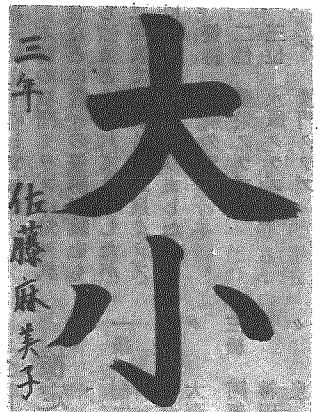 大小
三年 佐藤麻美子